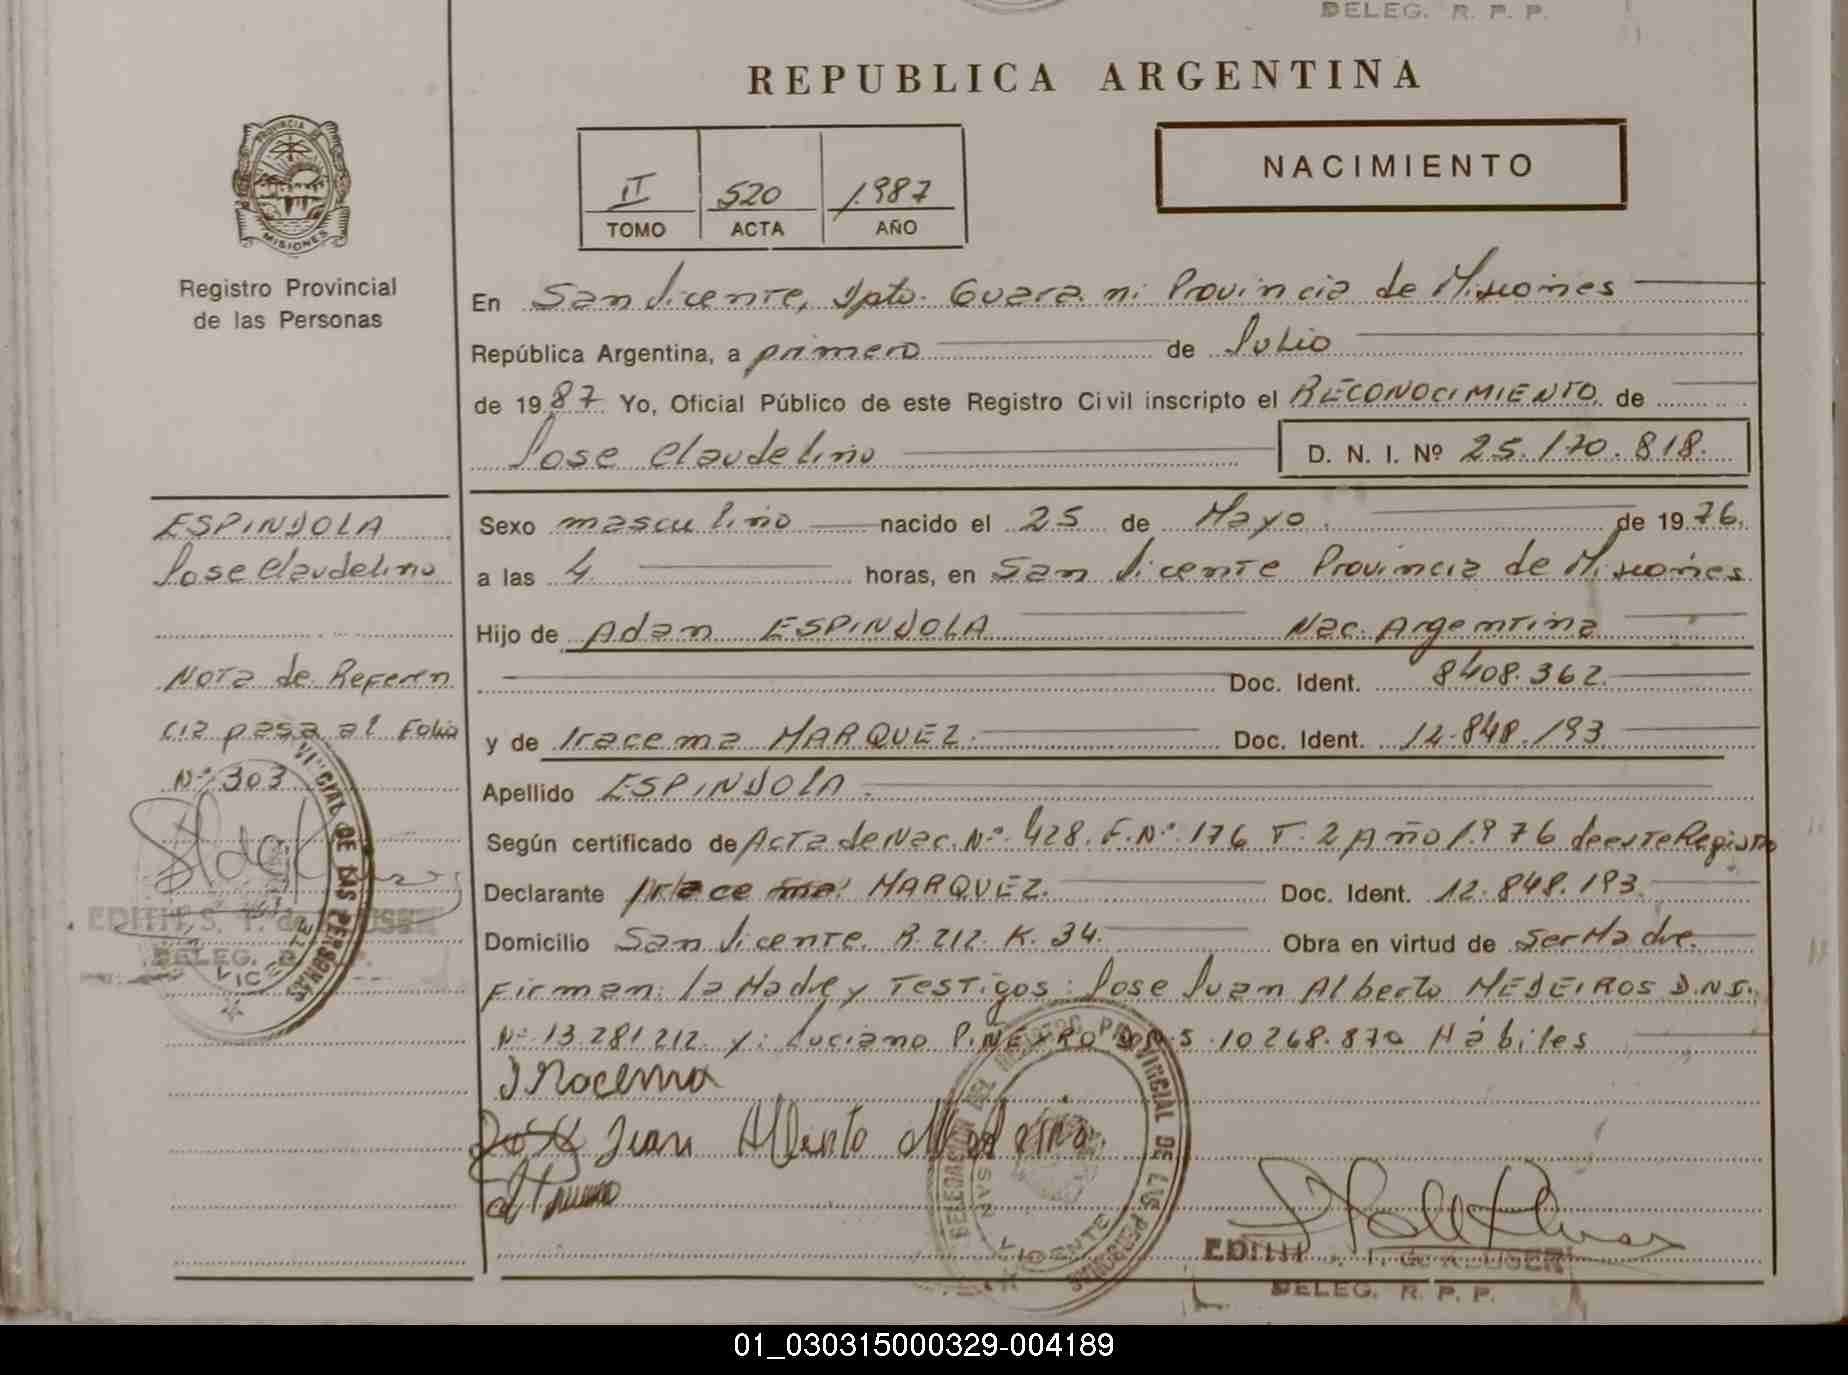 DELEG. R. P. P.
REPUBLICA ARGENTINA
PROVINCIA DE
MISIONES
Registro Provincial
de las Personas
II 520 1.987
TOMO ACTA AÑO
NACIMIENTO
En San Vicente, Dpto. Guara ni Provincia de Misiones
República Argentina, a primero de Julio
de 1987 Yo, Oficial Público de este Registro Civil inscripto el RECONOCIMIENTO de
Jose Claudelino D. N. I. Nº 25.170.818.
ESPINDOLA
Jose Claudelino
Nota de Referen
cia pasa al Folio
Nº 303
Sexo masculino nacido el 25 de Mayo. de 1976.
a las 4 horas, en San Vicente Provincia de Misiones
Hijo de Adan ESPINDOLA Nac. Argentina
Doc. Ident. 8408.362.
y de Iracema MARQUEZ. Doc. Ident. 12.848.193
Apellido ESPINDOLA.
Según certificado de Acta de Nac. Nº 428. F.Nº 176 T. 2 Año 1.976 de este Registro
Declarante Iracema MARQUEZ. Doc. Ident. 12.848.193.
Domicilio San Vicente. R. 212. K. 34. Obra en virtud de Ser Madre.
Firman: la Madre y Testigos: Jose Juan Alberto MEDEIROS D.N.I.
Nº 13.281.212. y: Luciano PIÑEYRO 10.268.870 Hábiles
Iracema
José Juan Alberto Medeiros
DELEGACION DEL REGISTRO PROVINCIAL DE LAS PERSONAS
SAN VICENTE
VINCIAL DE LAS PERSONAS
VICENTE
EDITH S. T. de
DELEG.
EDITH T. G. KLUSER
DELEG. R. P. P.
01_030315000329-004189